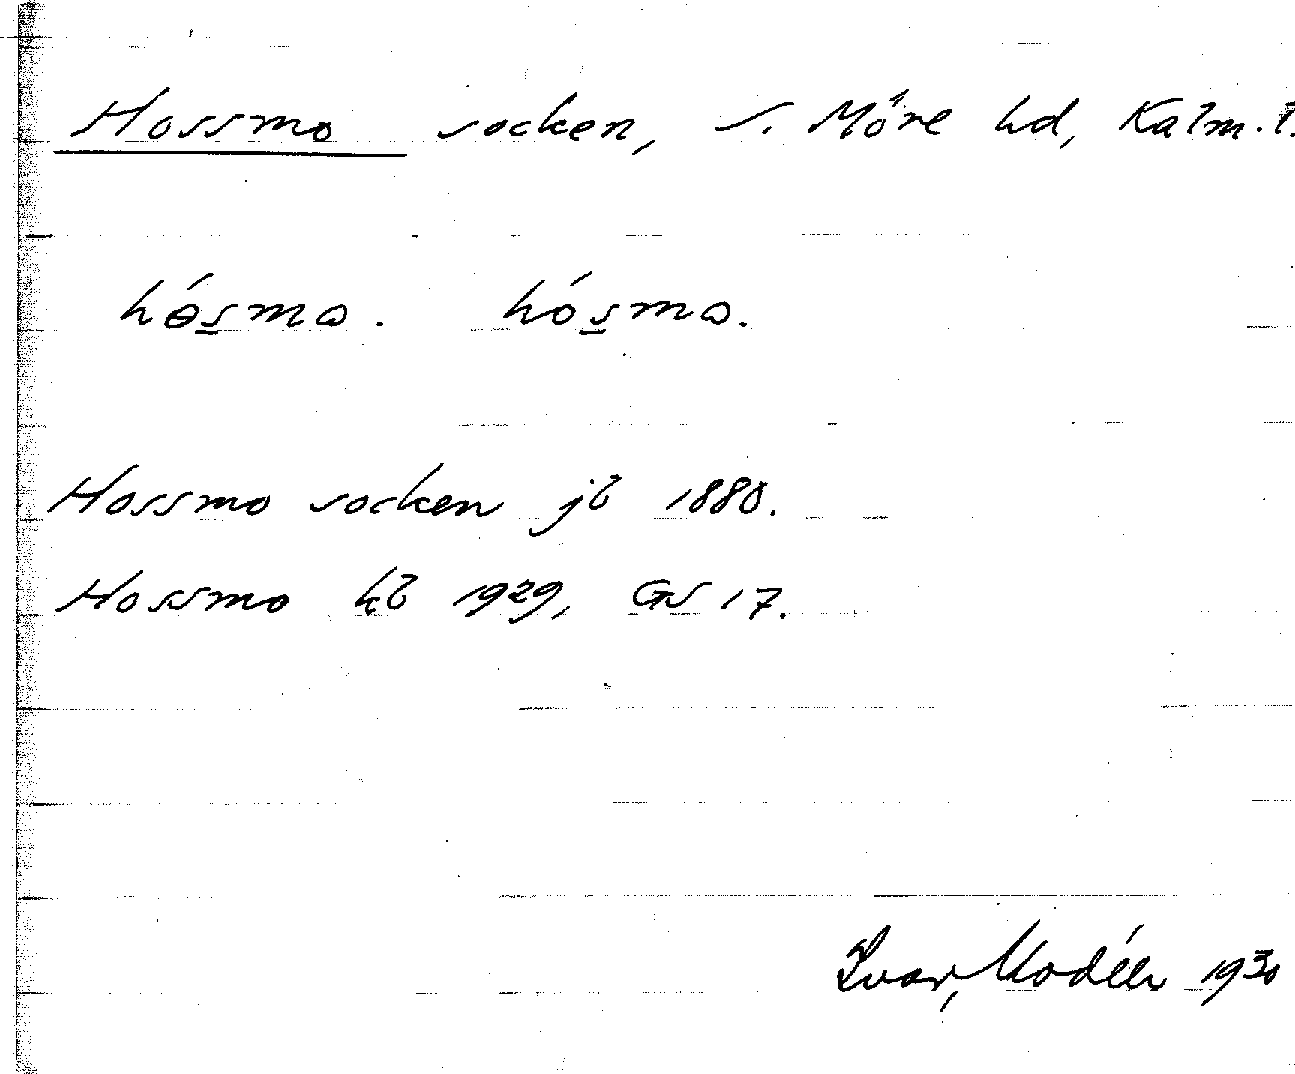 Hossmo socken, S. Möre hd, Kalm. l.
hósmo. hósmo.
Hossmo socken jb 1880.
Hossmo kb 1929, GS 17.
Ivar Modéer 1930